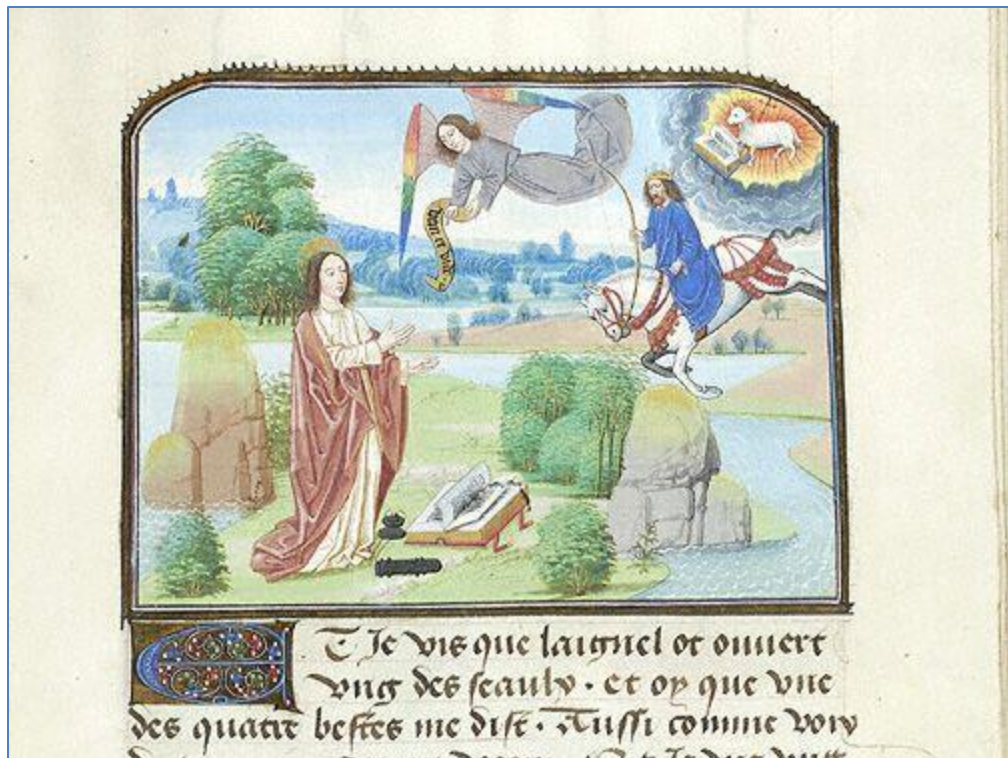 Vien et voie
ET Je vis que laignel ot ouuert
vng des seaulx · et oy que vne
des quatre bestes me dist · Aussi comme voix